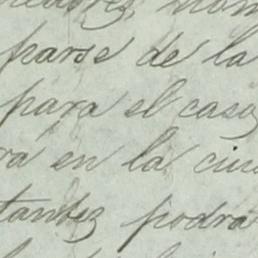 parse de la
para el caso
ra en la ciu
tantes podrá